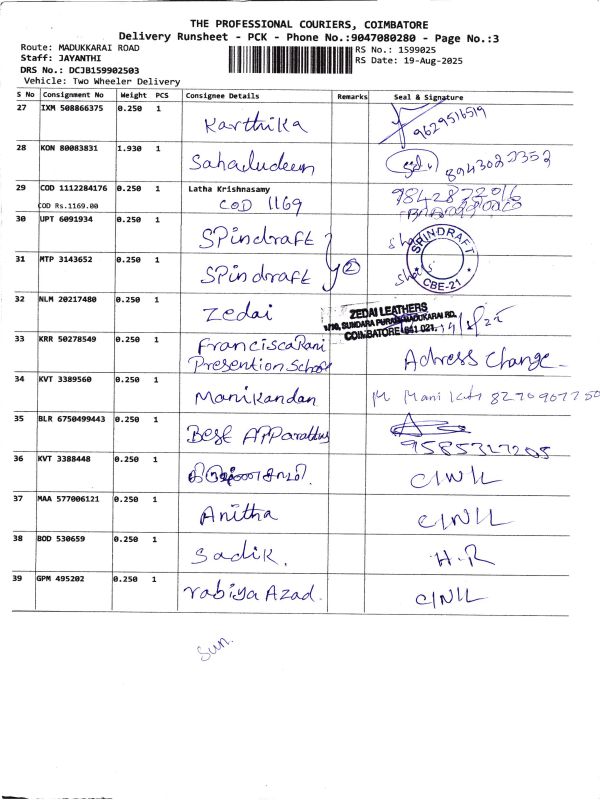 THE PROFESSIONAL COURIERS, COIMBATORE
Delivery Runsheet - PCK - Phone No.:9047080280 - Page No.:3
Route: MADUKKARAI ROAD
RS No.: 1599025
Staff: JAYANTHI
RS Date: 19-Aug-2025
DRS No.: DCJB159902503
Vehicle: Two Wheeler Delivery
S No Consignment No Weight PCS Consignee Details Remarks Seal & Signature
27 IXM 508866375 0.250 1 Karthika 9629516519
28 KON 80083831 1.930 1 Sahaludeen 8943082352
29 COD 1112284176 0.250 1 Latha Krishnasamy 9842872016
COD Rs.1169.00 COD 1169
30 UPT 6091934 0.250 1 SPindraft
31 MTP 3143652 0.250 1 SPindraft 2
SPINDRAFT
CBE-21
32 NLM 20217480 0.250 1 Zedai
ZEDAI LEATHERS
COIMBATORE 641 021.
33 KRR 50278549 0.250 1 FranciscaRani
Presention School Adress Change
34 KVT 3389560 0.250 1 Manikandan M Mani
35 BLR 6750499443 0.250 1 Best APParattus 9585327205
36 KVT 3388448 0.250 1 C/N/L
37 MAA 577006121 0.250 1 Anitha C/N/L
38 BOD 530659 0.250 1 Sadik. H.R
39 GPM 495202 0.250 1 rabiya Azad. C/N/L
Sun.